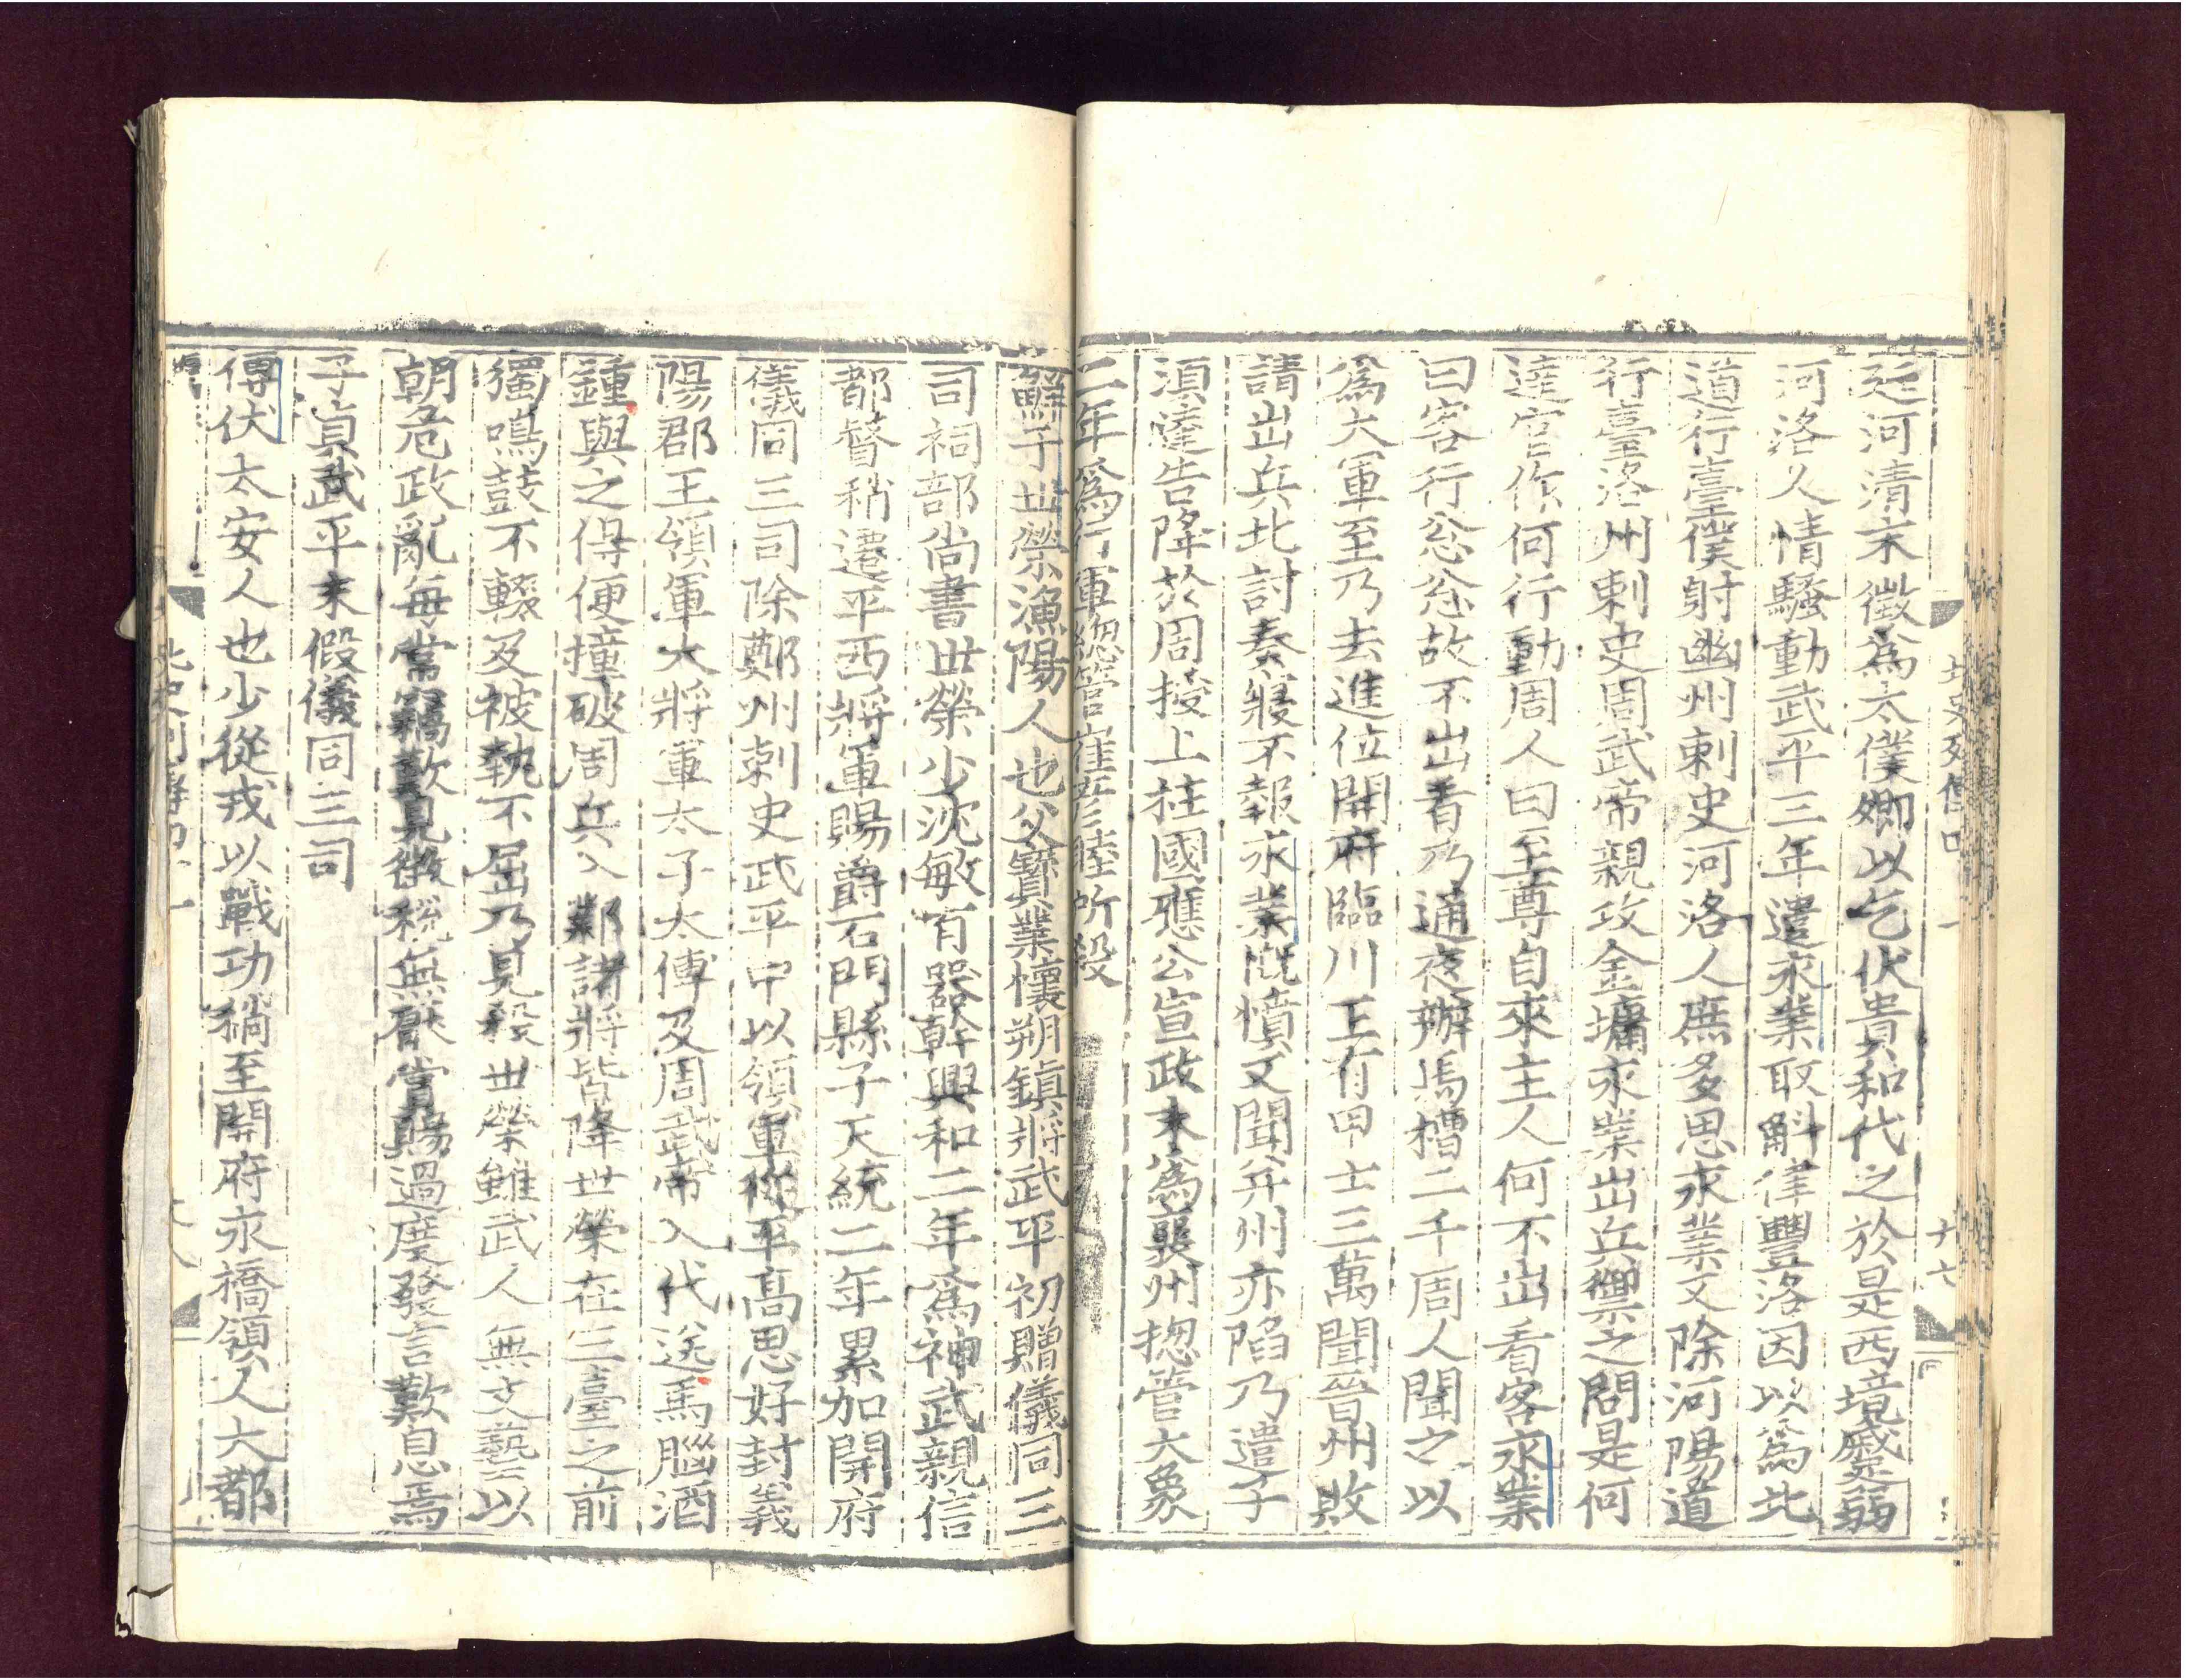 北史列傳四 一
十六
廷河清末徵爲太僕卿以乞伏貴和代之於是西境蹙弱
河洛人情騷動武平三年遣永業取斛律豐洛因以爲北
道行臺僕射幽州刺史河洛人庶多思永業又除河陽道
行臺洛州刺史周武帝親攻金墉永業出兵禦之問是何
達官作何行動周人曰至尊自來主人何不出看客永業
曰客行忩忩故不出看乃通夜辦馬槽二千周人聞之以
爲大軍至乃去進位開府臨川王有甲士三萬聞晉州敗
請出兵北討奏寢不報永業慨憤又聞并州亦陷乃遣子
須達告降於周授上柱國應公宣政末爲襄州揔管大象
二年爲行軍總管崔彦睦所殺
鮮于世榮漁陽人也父寶業懷朔鎮將武平初贈儀同三
司祠部尚書世榮少沈敏有器幹興和二年爲神武親信
都督稍遷平西將軍賜爵石門縣子天統二年累加開府
儀同三司除鄭州刺史武平中以領軍從平高思好封義
陽郡王領軍大將軍太子太傅及周武帝入代送馬腦酒
鍾與之得便撞破周兵入鄴諸將皆降世榮在三臺之前
獨鳴鼓不輟及被執不屈乃見殺世榮雖武人無文藝以
朝危政亂每常竊歎見徵稅無厭賞賜過度發言歎息焉
子貞武平末假儀同三司
傅伏太安人也少從戎以戰功稍至開府永橋領人大都
北史列傳四十一